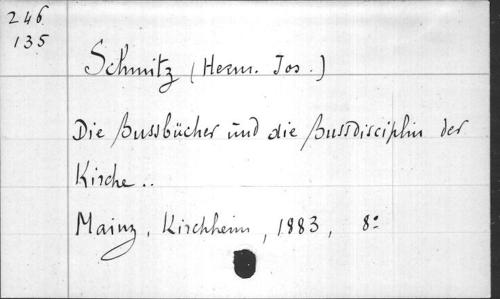 246
135
Schmitz (Herm. Jos.)
Die Bussbücher und die Bussdisciplin der
Kirche..
Mainz, Kirchheim, 1883, 8º